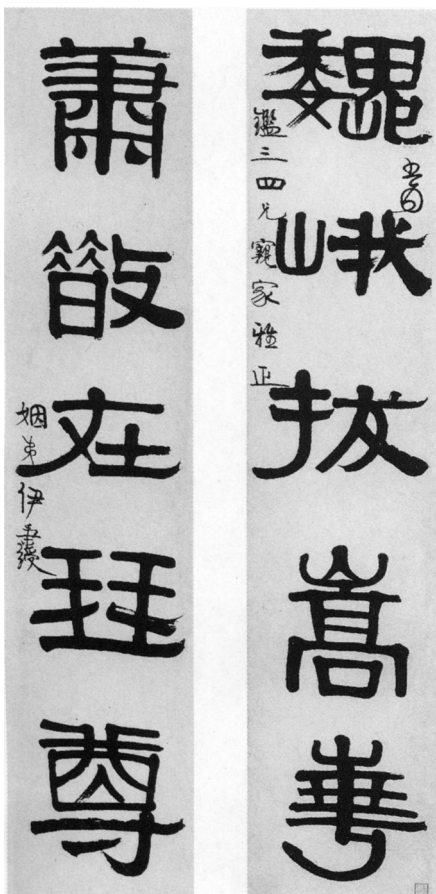 巍峨拔嵩華
鑑三四兄親家雅正
蕭散在琴尊
姻弟伊秉綬